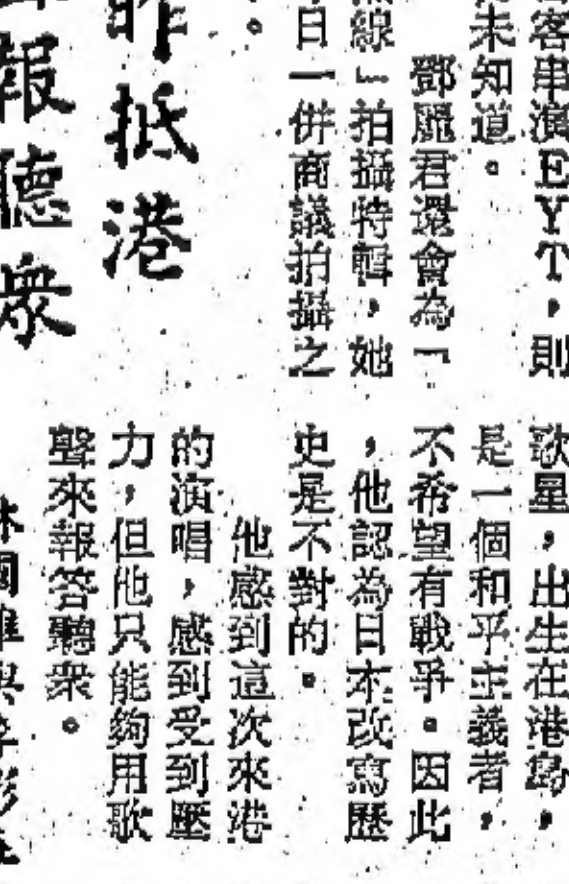 客串演EYT，則
未知道。
鄧麗君還會為「
線」拍攝特輯，她
日一併商議拍攝之
。
歌星，出生在港島，
是一個和平主義者，
不希望有戰爭。因此
，他認為日本改寫歷
史是不對的。
他感到這次來港
的演唱，感到受到壓
力，但他只能夠用歌
聲來報答聽衆。
昨抵港
報聽衆